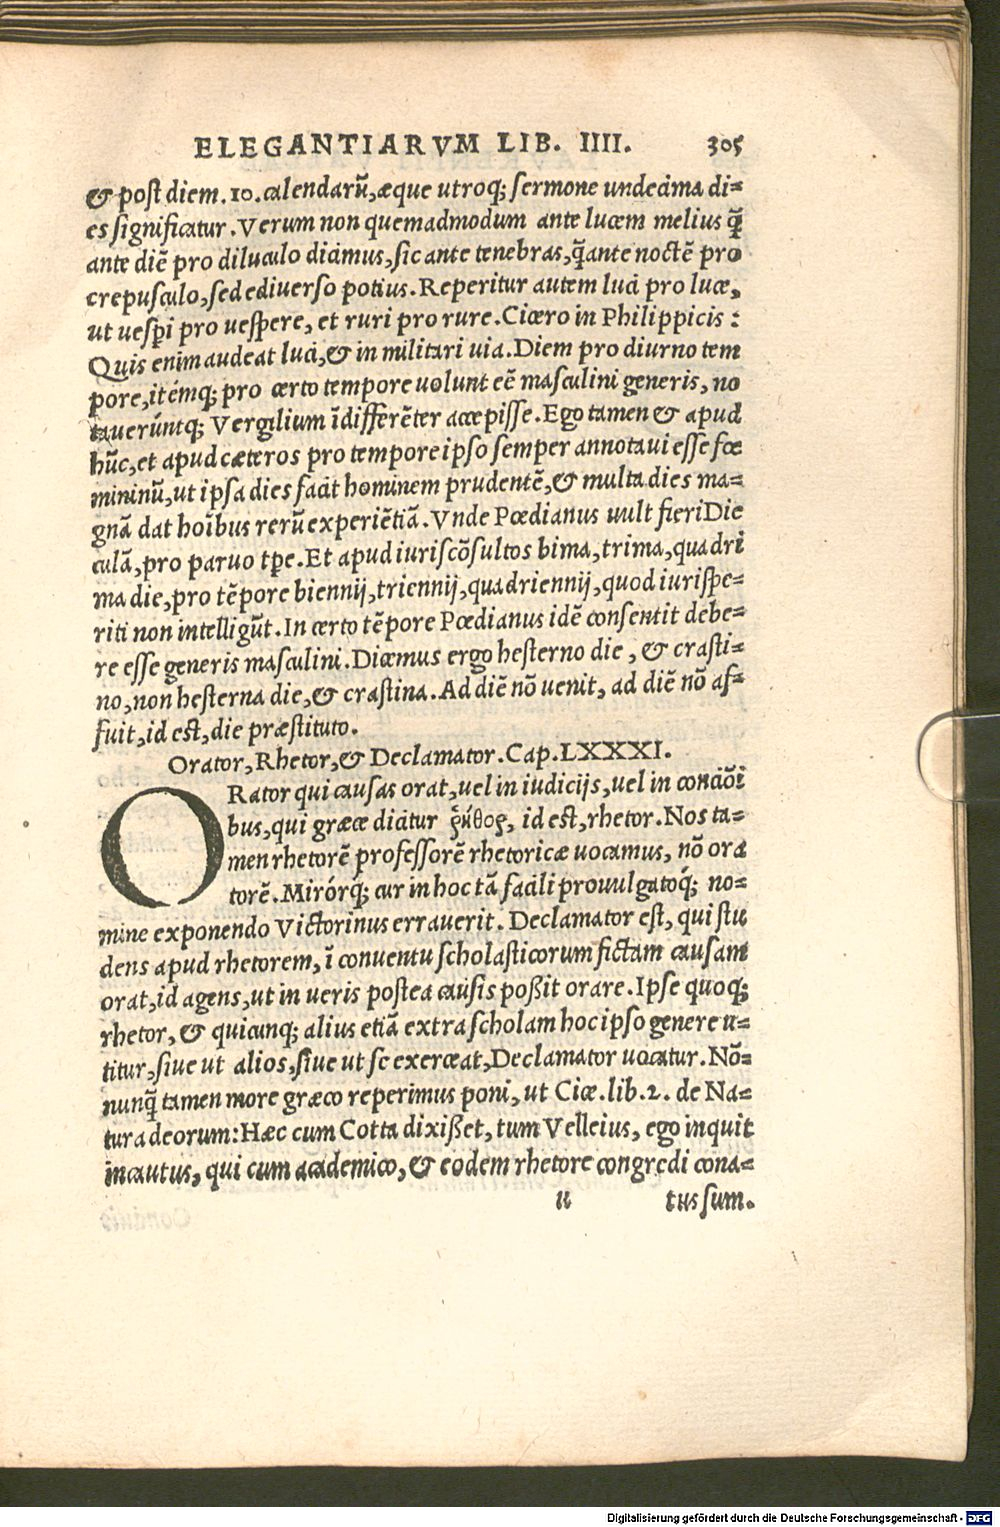 ELEGANTIARVM LIB. IIII. 305
& post diem .10. calendarũ, æque utroq; sermone undecima di=
es significatur. Verum non quemadmodum ante lucem melius q̃
ante diẽ pro diluculo dicimus, sic ante tenebras, q̃ ante noctẽ pro
crepusculo, sed ediuerso potius. Reperitur autem luci pro luce,
ut uesperi pro uespere, et ruri pro rure. Cicero in Philippicis:
Quis enim audeat luci, & in militari uia. Diem pro diurno tem
pore, itémq; pro certo tempore uolunt eẽ masculini generis, no
tauerúntq; Vergilium ĩdifferẽter accepisse. Ego tamen & apud
hũc, et apud cæteros pro tempore ipso semper annotaui esse fœ
mininũ, ut ipsa dies facit hominem prudentẽ, & multa dies ma=
gnã dat hoĩbus rerũ experiẽtiã. Vnde Pœdianus uult fieri Die
culã, pro paruo tp̃e. Et apud iuriscõsultos bima, trima, quadri
ma die, pro tẽpore biennij, triennij, quadriennij, quod iurispe=
riti non intelligũt. In certo tẽpore Pœdianus idẽ consentit debe=
re esse generis masculini. Dicemus ergo hesterno die, & crasti=
no, non hesterna die, & crastina. Ad diẽ nõ uenit, ad diẽ nõ af=
fuit, id est, die præstituto.
Orator, Rhetor, & Declamator. Cap. LXXXI.
ORator qui causas orat, uel in iudicijs, uel in conciõi
bus, qui græce dicitur ῥήθορ, id est, rhetor. Nos ta=
men rhetorẽ professorẽ rhetoricæ uocamus, nõ ora
torẽ. Mirórq; cur in hoc tã facili prouulgatóq; no=
mine exponendo Victorinus errauerit. Declamator est, qui stu
dens apud rhetorem, ĩ conuentu scholasticorum fictam causam
orat, id agens, ut in ueris postea causis poßit orare. Ipse quoq;
rhetor, & quicunq; alius etiã extra scholam hoc ipso genere u=
titur, siue ut alios, siue ut se exerceat, Declamator uocatur. Nõ=
nunq̃ tamen more græco reperimus poni, ut Cice. lib. 2. de Na=
tura deorum: Hæc cum Cotta dixißet, tum Velleius, ego inquit
incautus, qui cum academico, & eodem rhetore congredi cona=
u tus sum.
Digitalisierung gefördert durch die Deutsche Forschungsgemeinschaft - DFG